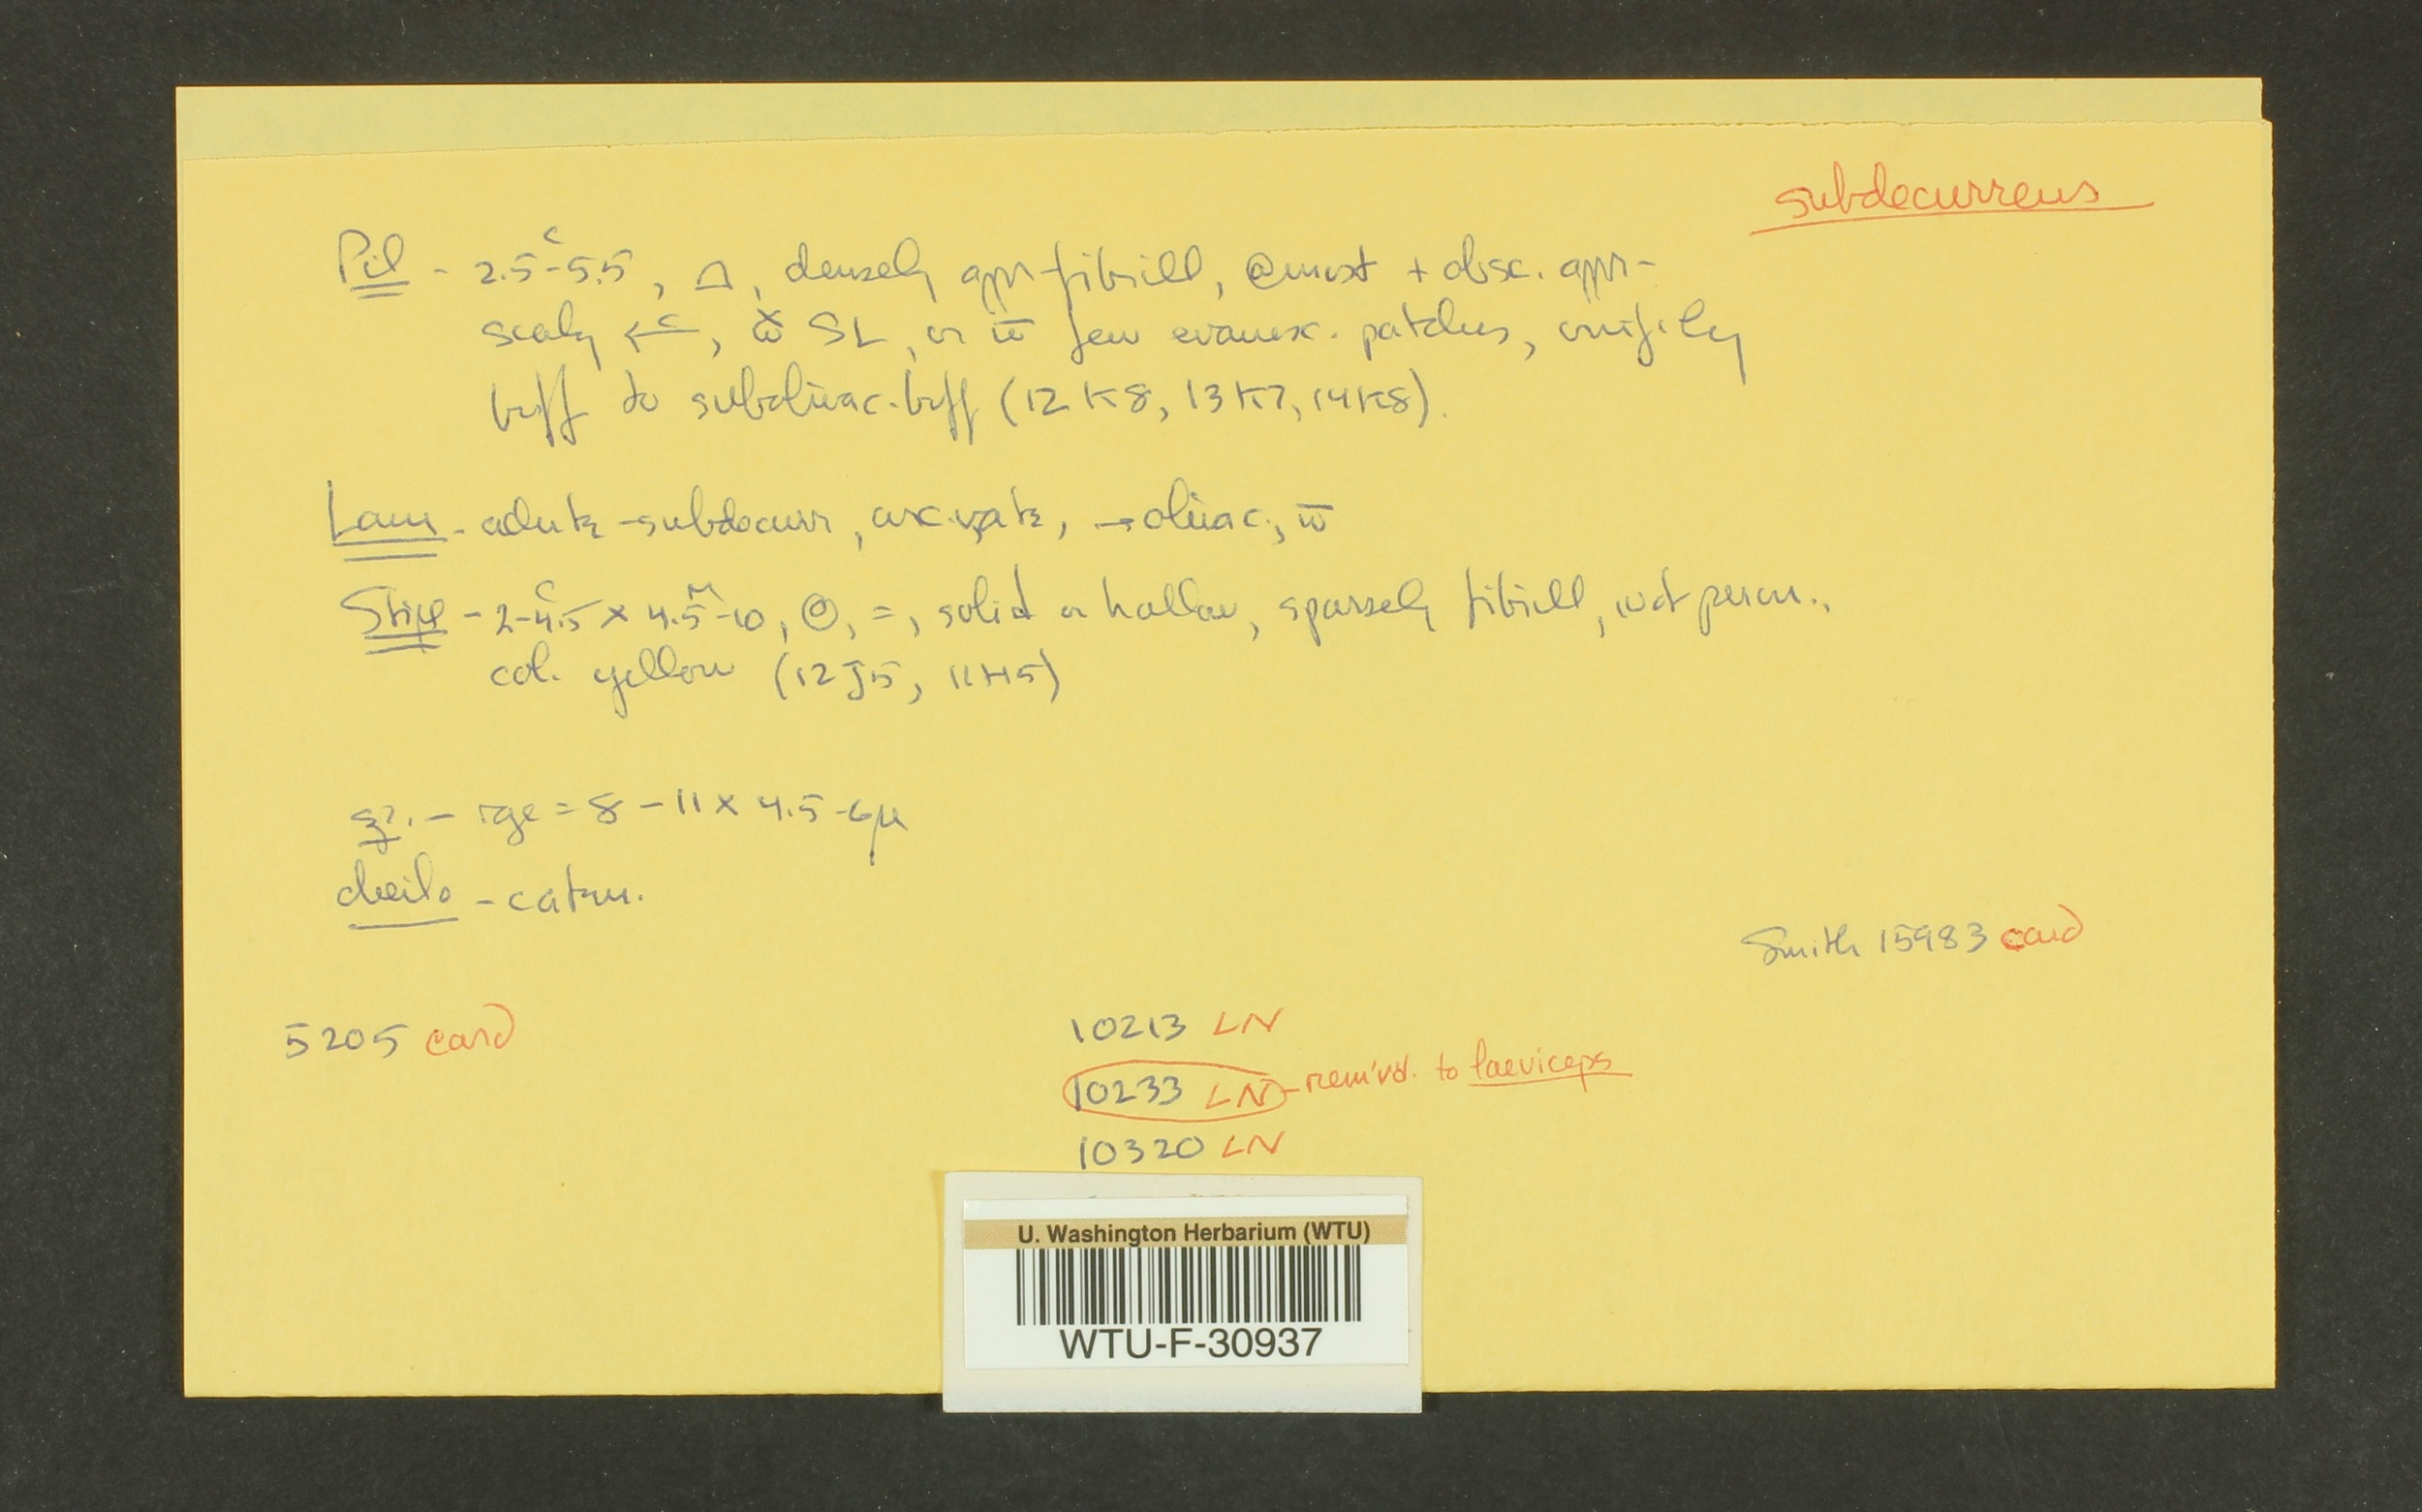 subdecurrens
Pil - 2.5-5.5, densely appr-fibrill, @ most + obsc. appr-
scaly, SL, or w̄ few evanesc. patches, unif'ly
buff to subolivac. buff (12K8, 13K7, 14K8).
Lam - adnate-subdecurr, arcuate, → olivac., w̄
Stipe - 2-4.5 x 4.5-10, =, solid or hollow, sparsely fibrill, not peron.,
col. yellow (12J5, 11H5)
sp. - rge = 8-11 x 4.5-6µ
cheilo - caten.
Smith 15983 card
5205 card
10213 LN
10233 LN - rem'vd. to laeviceps
10320 LN
U. Washington Herbarium (WTU)
WTU-F-30937